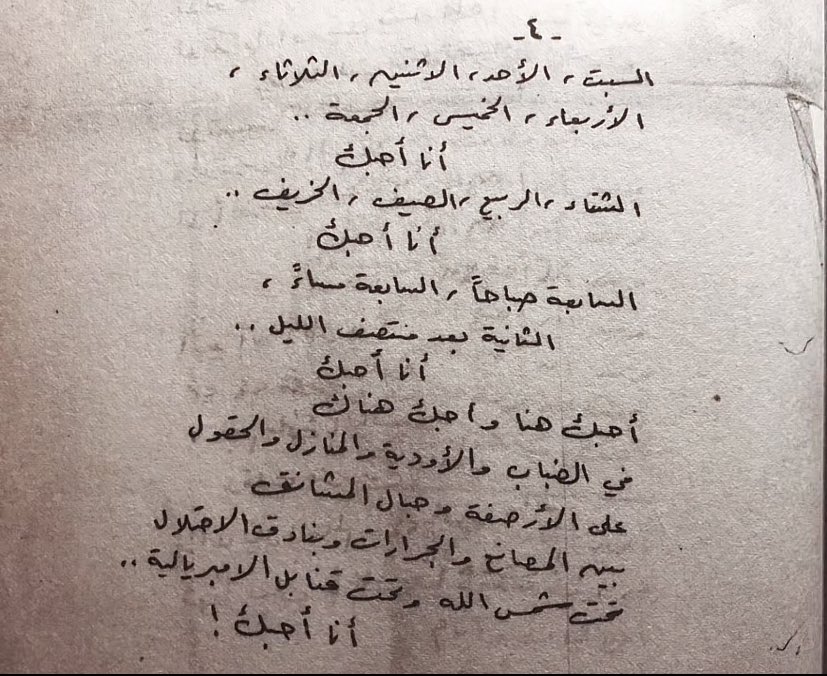 -٤-
السبت، الأحد، الاثنين، الثلاثاء،
الأربعاء، الخميس، الجمعة ..
أنا أحبك
الشتاء، الربيع، الصيف، الخريف ..
أنا أحبك
السابعة صباحاً، السابعة مساءً،
الثانية بعد منتصف الليل ..
أنا أحبك
أحبك هنا وأحبك هناك
في الضباب والأودية والمنازل والحقول
على الأرصفة وحبال المشانق
بين المصانع والجرارات وبنادق الاحتلال
تحت شمس الله وتحت قنابل الامبريالية ..
أنا أحبك !